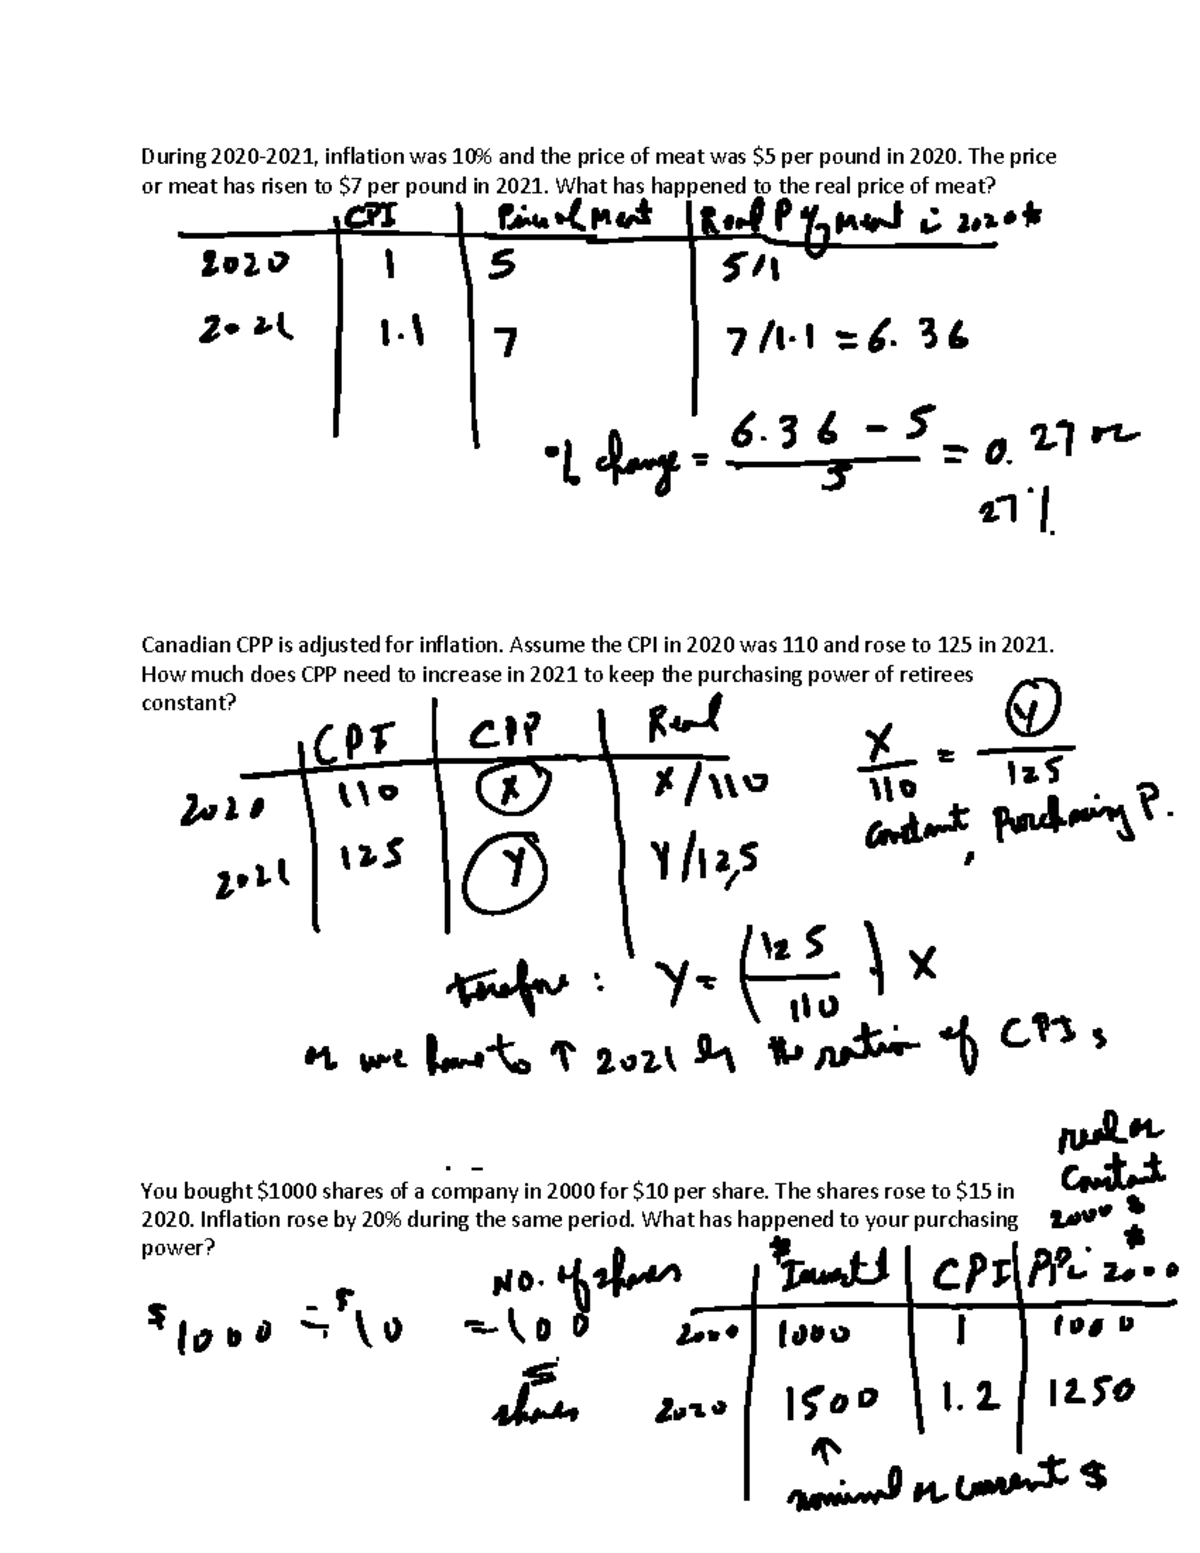 During 2020-2021, inflation was 10% and the price of meat was $5 per pound in 2020. The price
or meat has risen to $7 per pound in 2021. What has happened to the real price of meat?
CPI Price of Meat Real P of meat in 2020 $
2020 1 5 5/1
2021 1.1 7 7/1.1 = 6.36
% change = 6.36 - 5 / 5 = 0.27 or
27%
Canadian CPP is adjusted for inflation. Assume the CPI in 2020 was 110 and rose to 125 in 2021.
How much does CPP need to increase in 2021 to keep the purchasing power of retirees
constant?
CPI CPP Real
2020 110 X X/110
2021 125 Y Y/125
X/110 = Y/125
Constant Purchasing P.
therefore : Y = (125/110) X
or we have to ↑ 2021 by the ration of CPIs
You bought $1000 shares of a company in 2000 for $10 per share. The shares rose to $15 in
2020. Inflation rose by 20% during the same period. What has happened to your purchasing
power?
real or
Constant
2000 $
$1000 ÷ $10 = 100
No. of shares
shares
$ Invest CPI PP in 2000 $
2000 1000 1 1000
2020 1500 1.2 1250
↑
nominal or current $